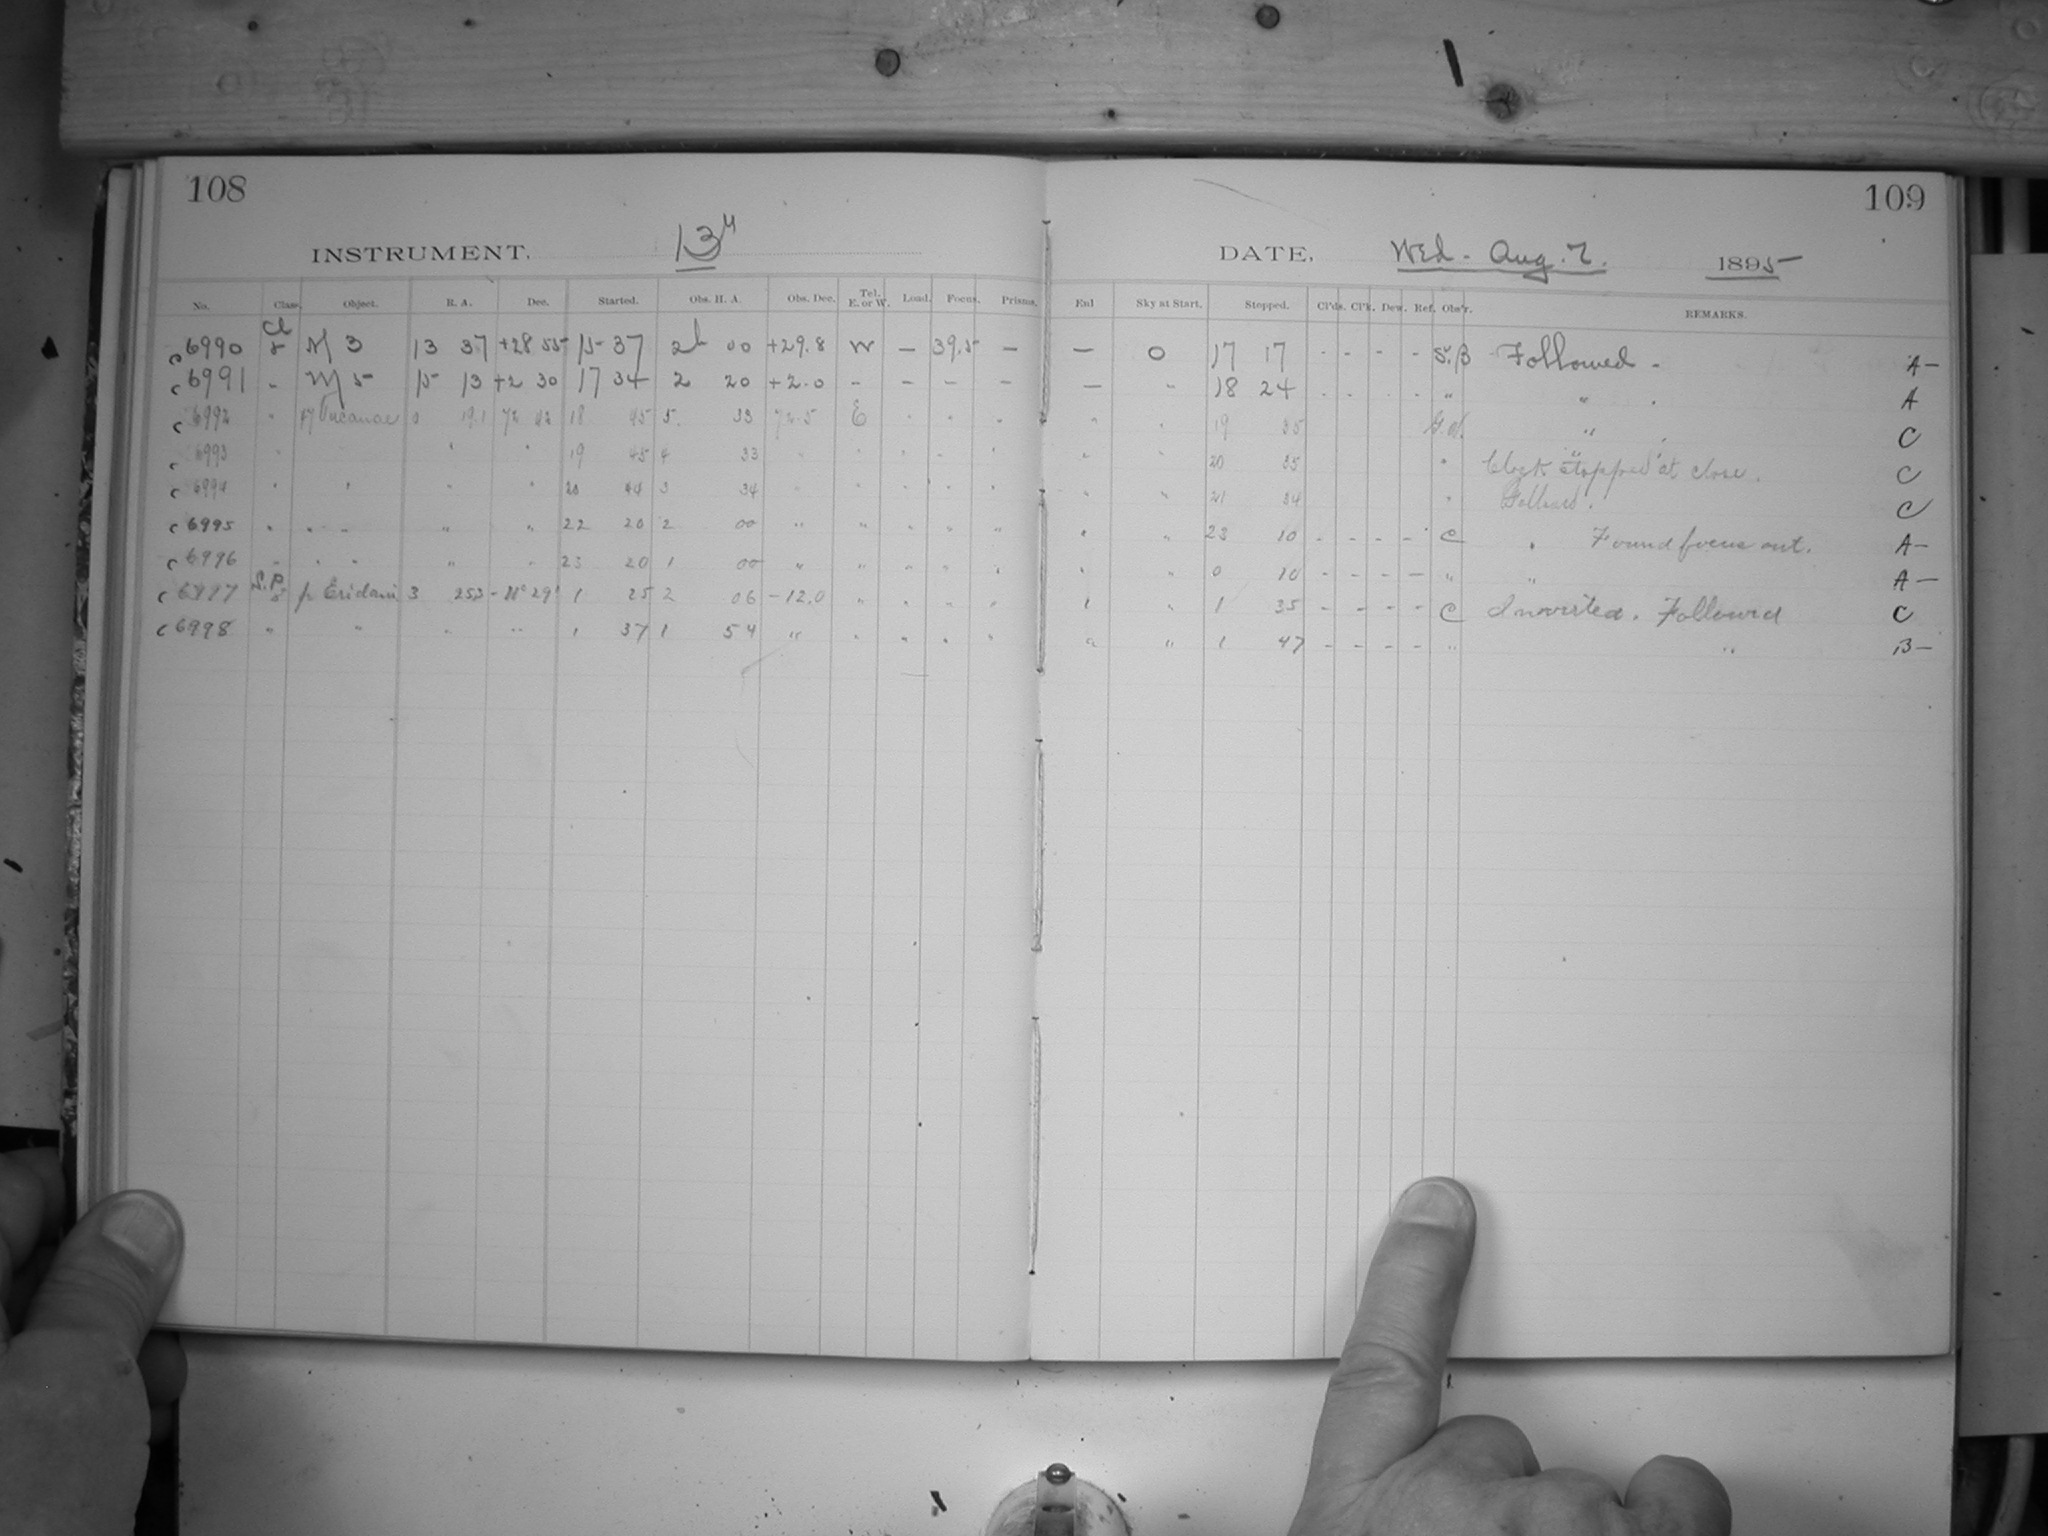 108
109
INSTRUMENT, 13"
DATE, Wed - Aug. 7. 1895
No. Class. Object. R. A. Dec. Started. Obs. H. A. Obs. Dec. Tel. E. or W. Load. Focus. Prisms. Enl Sky at Start. Stopped. Cl'ds. Cl'k. Dew. Ref. Obs'r. REMARKS.
c 6990 Cl 8 M 3 13 37 +28 55 15 37 2h 00 +29.8 W — 39.5 — — 0 17 17 - - - - S.B Followed - A-
c 6991 " M 5 15 13 +2 30 17 34 2 20 +2.0 - - - - — " 18 24 - - - - " " A
c 6992 " 47 Tucanae 0 19.1 72 42 18 45 5 33 72.5 E " " " " " 19 35 " C
c 6993 " " " " 19 45 4 33 " " " " " " " 20 35 " Clock stopped at close. C
c 6994 " " " " 20 44 3 34 " " " " " " " 21 34 " Followed. C
c 6995 " " " " " 22 20 2 00 " " " " " " " 23 10 - - - - C " Found focus out. A-
c 6996 " " " " " 23 20 1 00 " " " " " " " 0 10 - - - - " " A-
c 6997 S.P. 8 Eridani 3 25.3 - 11° 29' 1 25 2 06 -12.0 " " " " " " 1 35 - - - - C Followed C
c 6998 " " " " 1 37 1 54 " " " " " " " 1 47 - - - - " " B-